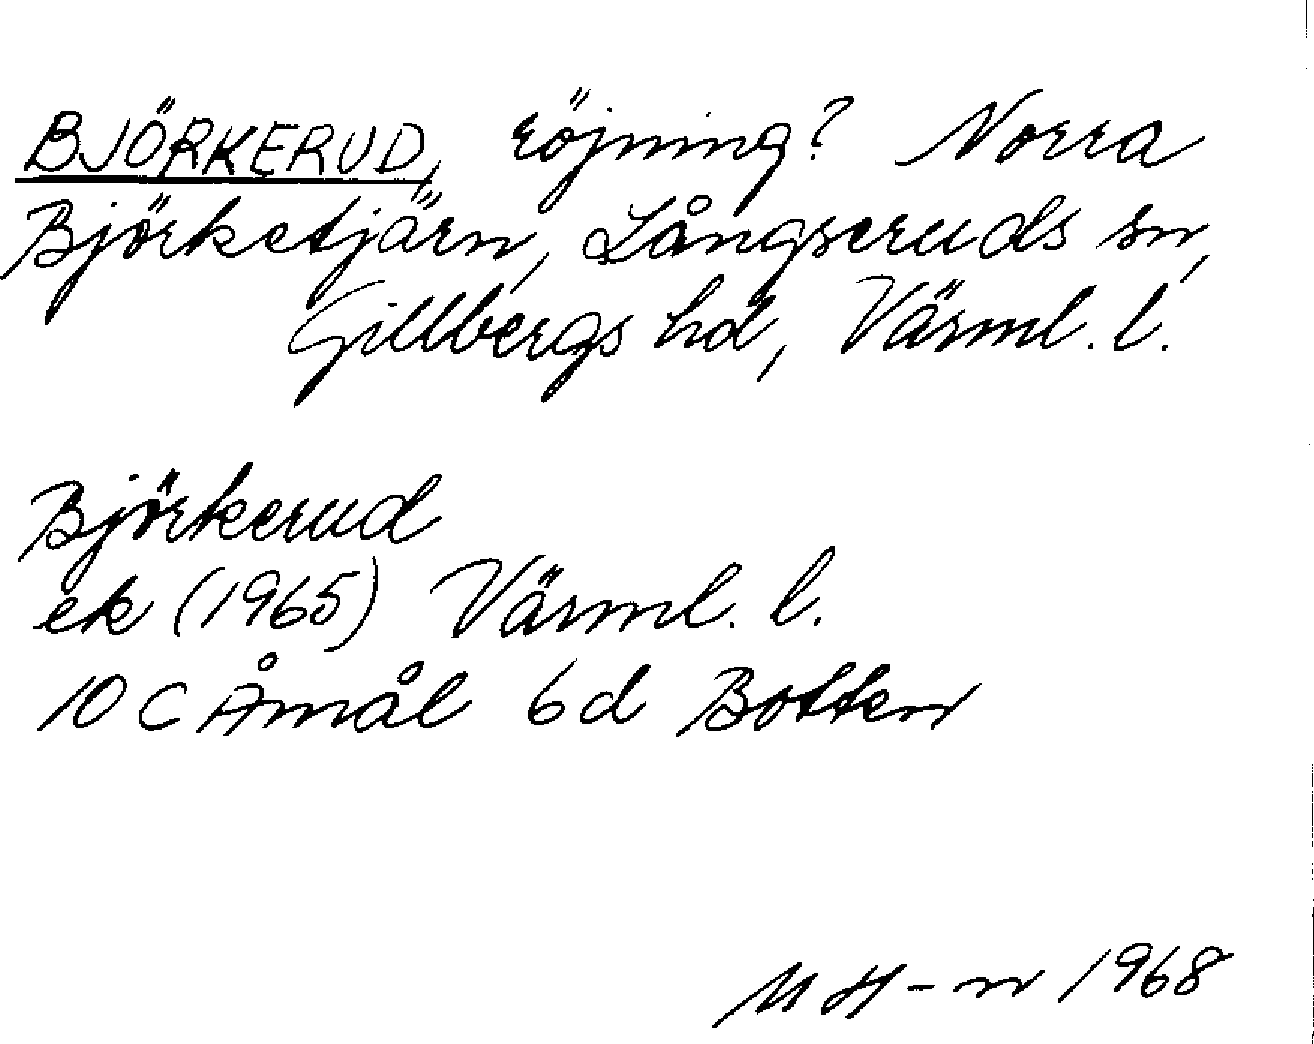 BJÖRKERUD, röjning? Norra
Björketjärn, Långseruds sn,
Gillbergs hd, Värml. l.
Björkerud
ek (1965) Värml. l.
10 C Åmål 6d Botten
MH-n 1968